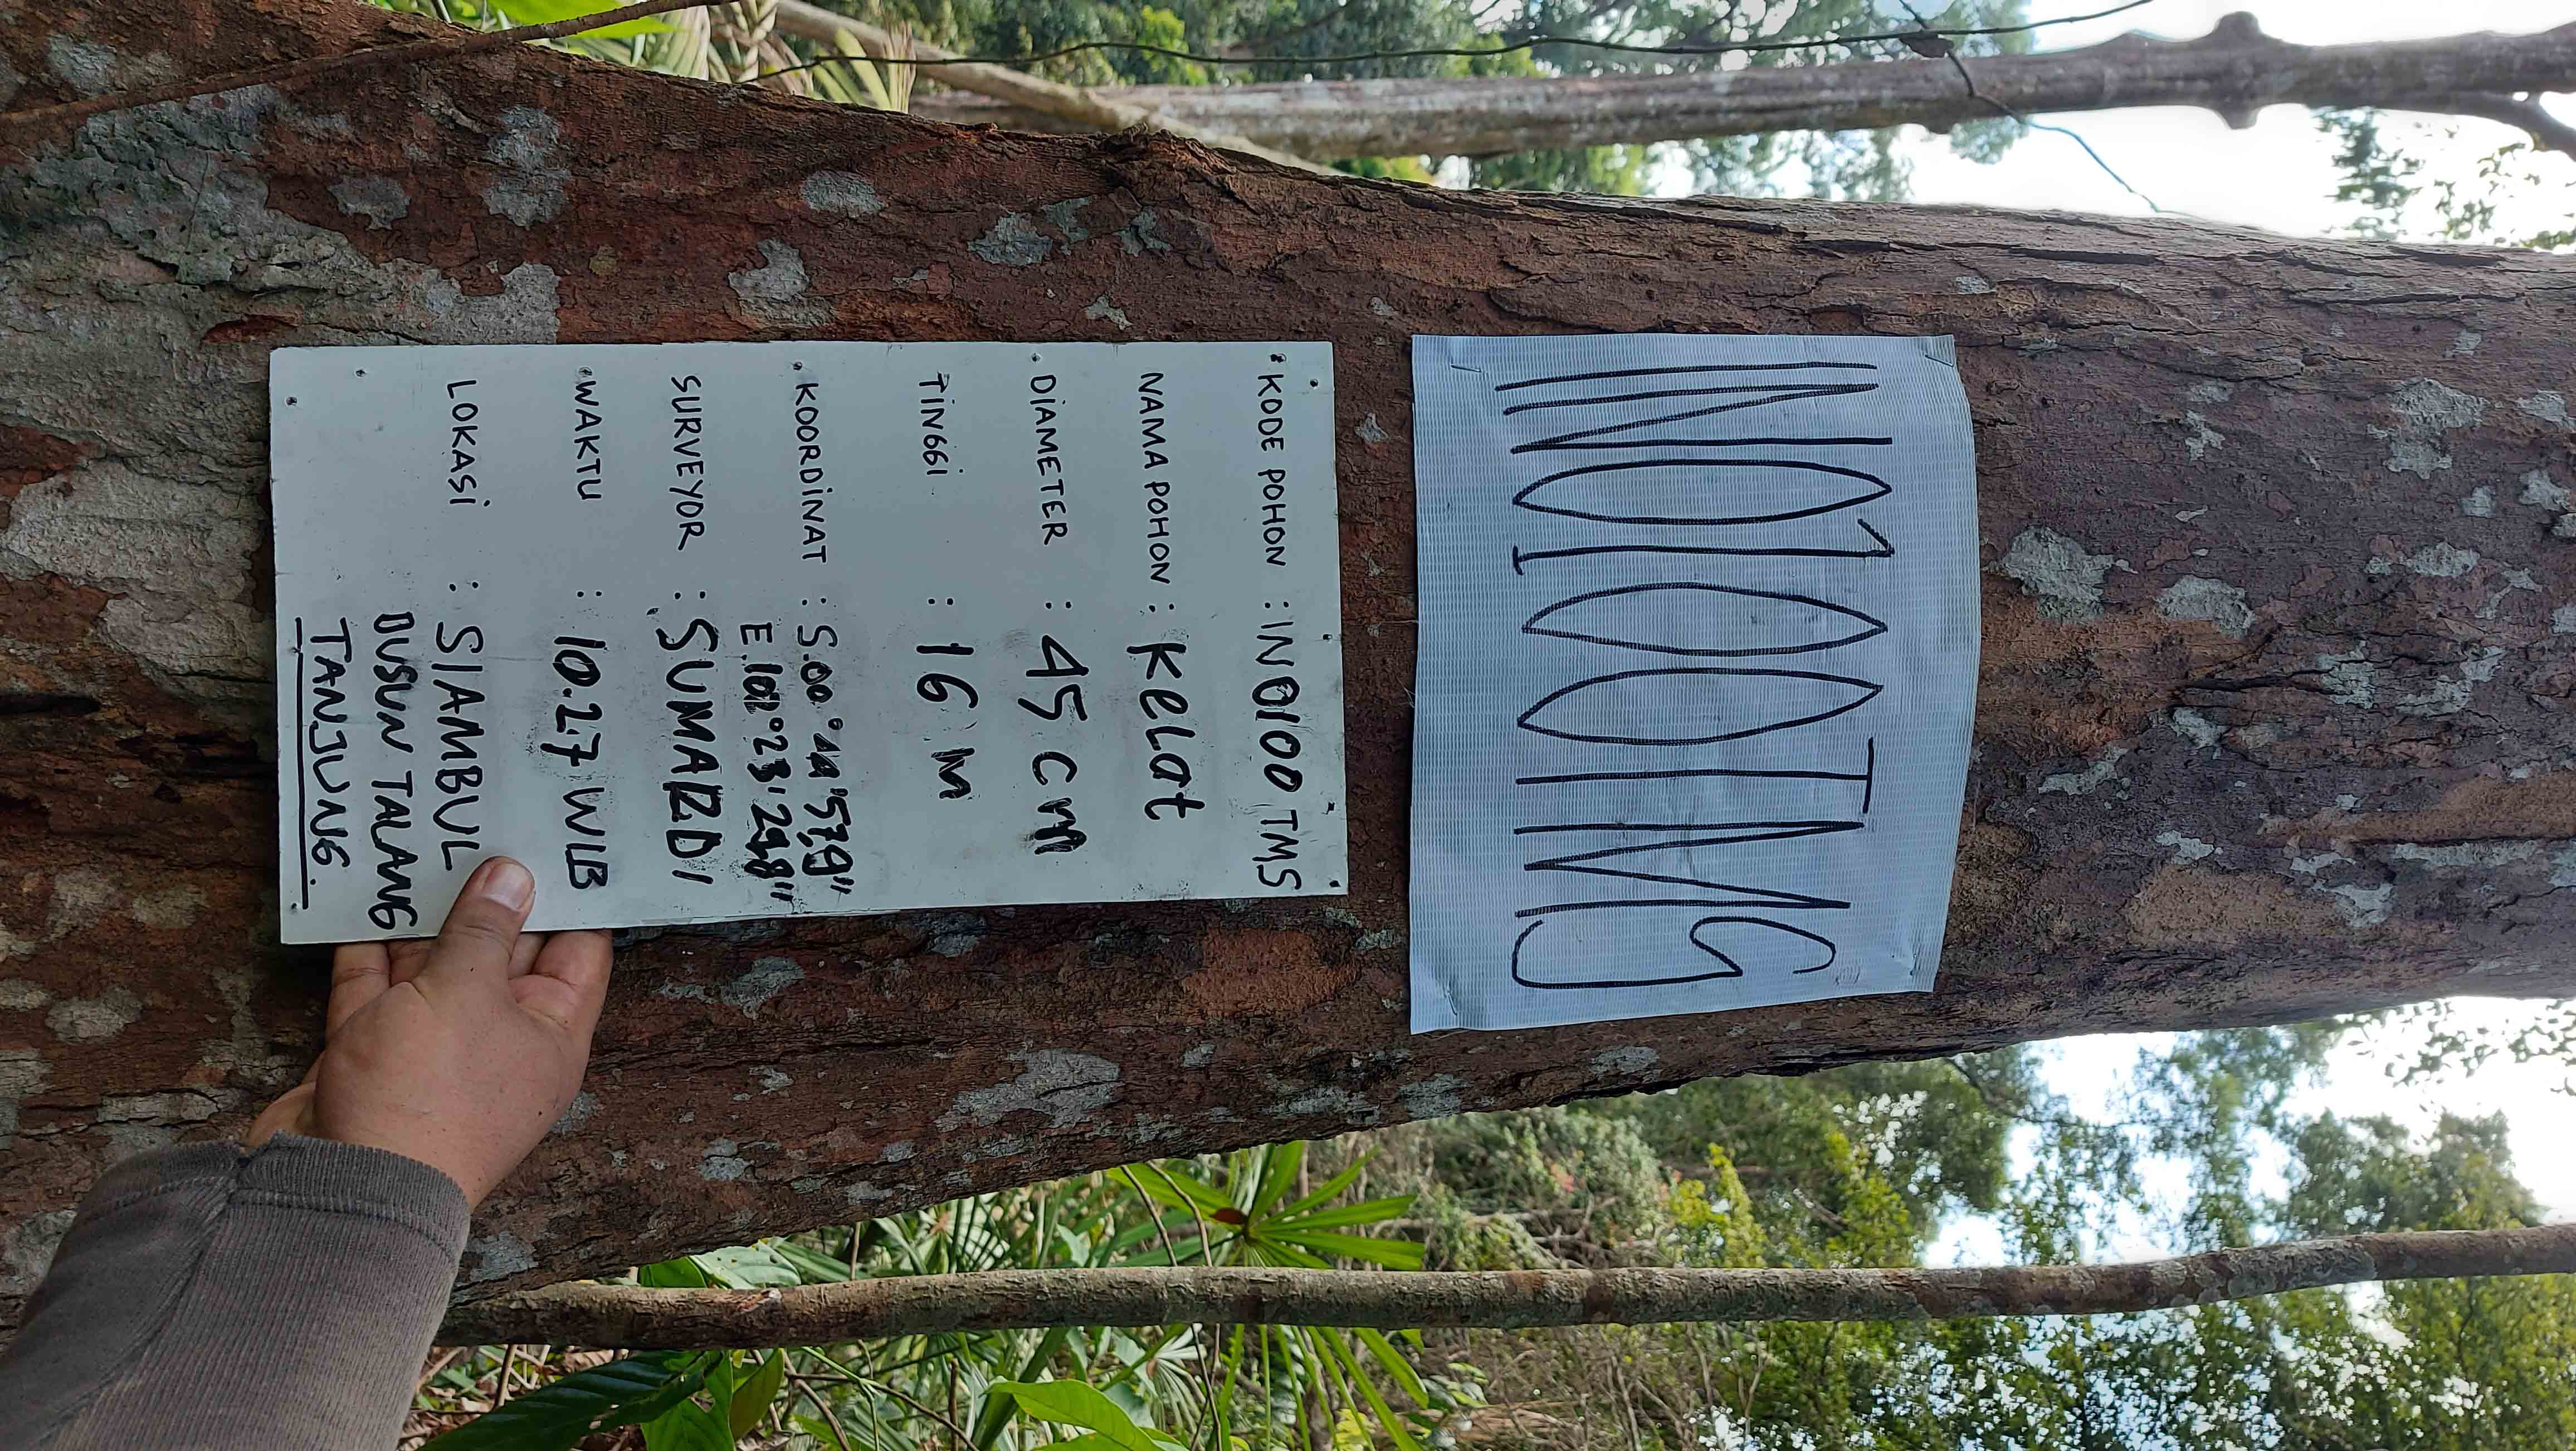 IN0100TMS
KODE POHON : IN 0100 TMS
NAMA POHON : KeLat
DiAMETER : 45 cm
TiNGGi : 16 M
KOORDiNAT : S.00°44'57,9"
E.102°23'
SURVEYOR : SUMARDI
WAKTU : 10.27 WIB
LOKASi : SIAMBUL
DUSUN TALANG
TANJUNG.